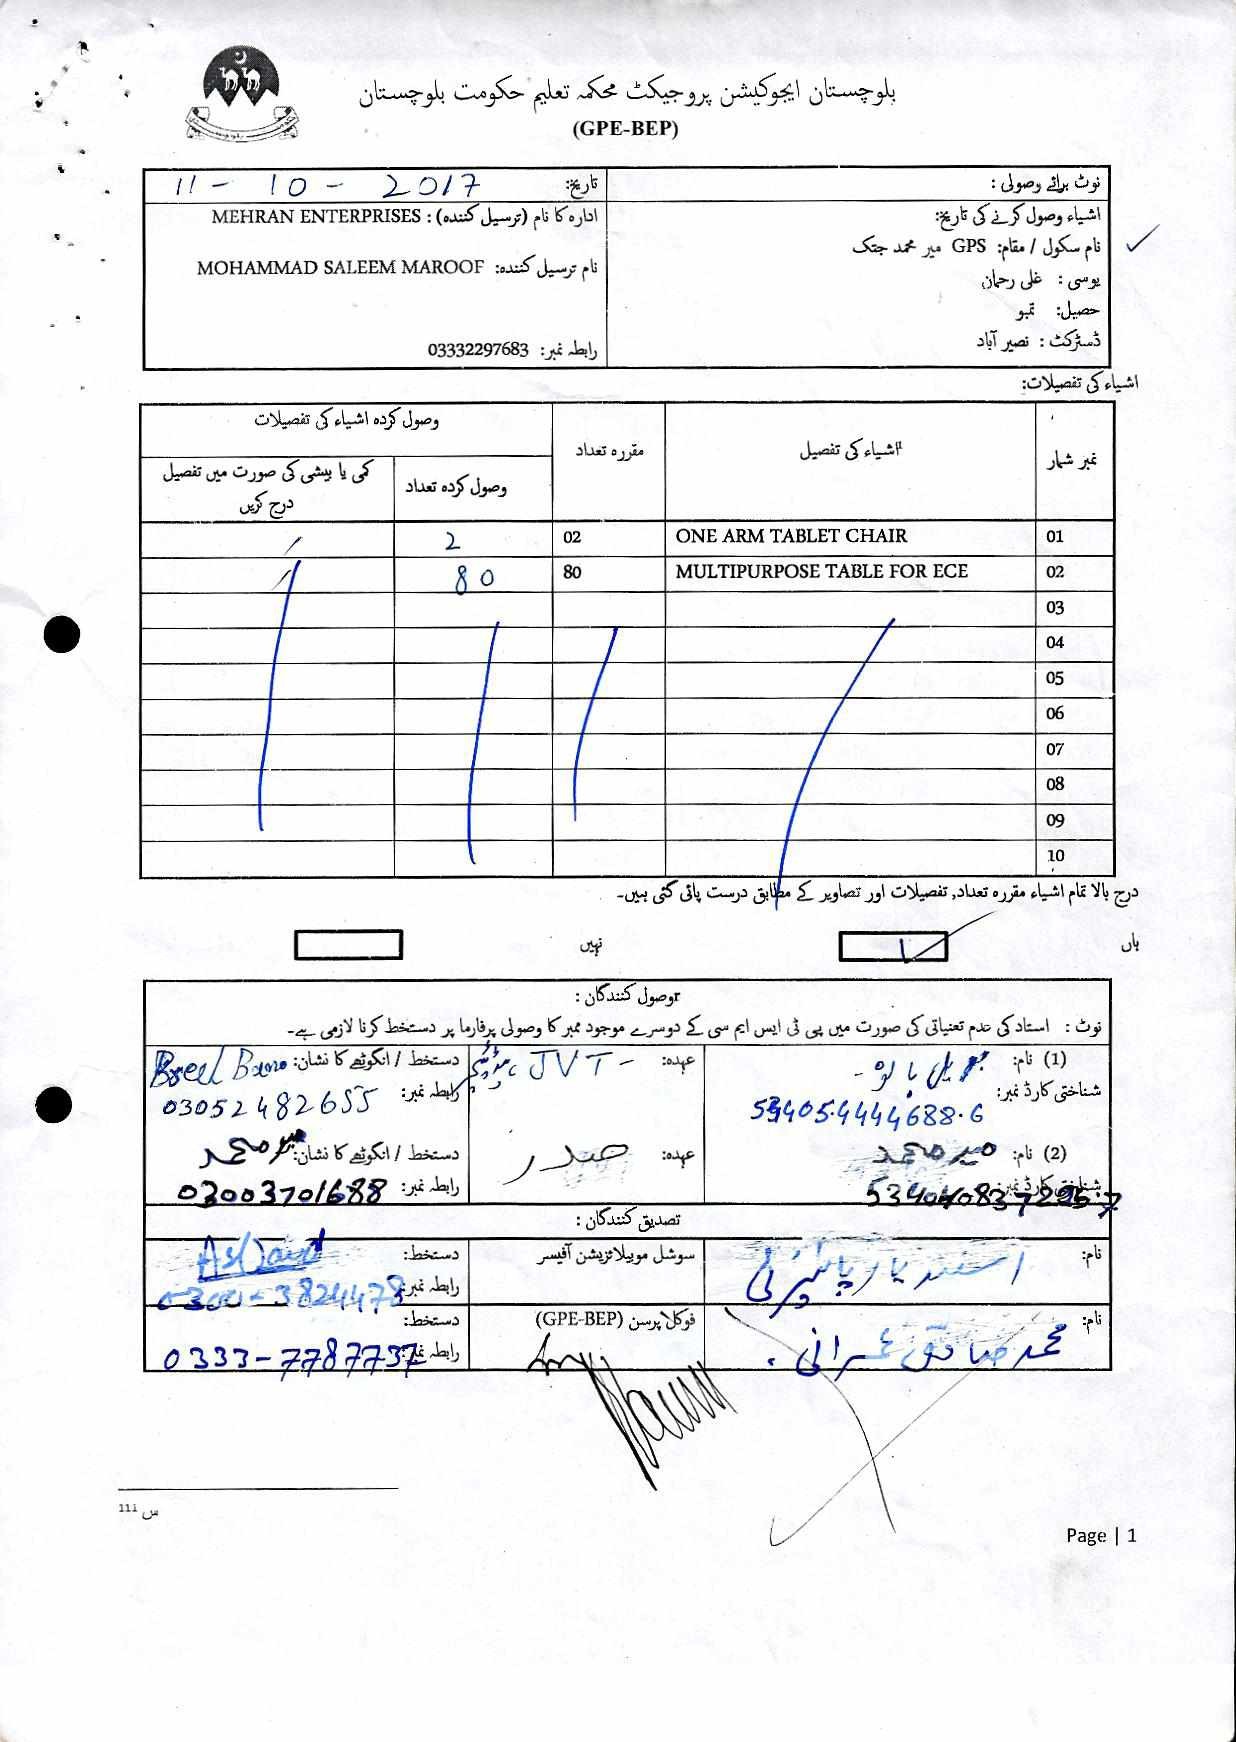 بلوچستان ایجوکیشن پروجیکٹ محکمہ تعلیم حکومت بلوچستان
(GPE-BEP)
نوٹ برائے وصولی :
تاریخ: 11 - 10 - 2017
اشیاء وصول کرنے کی تاریخ:
ادارہ کا نام (ترسیل کنندہ) : MEHRAN ENTERPRISES
نام سکول / مقام: GPS میر محمد جتک
نام ترسیل کنندہ: MOHAMMAD SALEEM MAROOF
یوسی : علی رحمان
حصیل: تمبو
ڈسٹرکٹ : نصیر آباد
رابطہ نمبر: 03332297683
اشیاء کی تفصیلات:
نمبر شمار اشیاء کی تفصیل مقررہ تعداد وصول کردہ اشیاء کی تفصیلات
وصول کردہ تعداد کمی یا بیشی کی صورت میں تفصیل درج کریں
01 ONE ARM TABLET CHAIR 02 2
02 MULTIPURPOSE TABLE FOR ECE 80 80
03
04
05
06
07
08
09
10
درج بالا تمام اشیاء مقررہ تعداد, تفصیلات اور تصاویر کے مطابق درست پائی گئی ہیں۔
ہاں نہیں
وصول کنندگان :
نوٹ : استاد کی عدم تعنیاتی کی صورت میں پی ٹی ایس ایم سی کے دوسرے موجود ممبر کا وصولی پرفارما پر دستخط کرنا لازمی ہے۔
(1) نام: عہدہ: JVT دستخط / انگوٹھے کا نشان:
شناختی کارڈ نمبر: رابطہ نمبر: 03052482655
(2) نام: میر محمد عہدہ: صدر دستخط / انگوٹھے کا نشان: میر محمد
شناختی کارڈ نمبر: رابطہ نمبر: 03003701688
تصدیق کنندگان :
نام: سوشل موبیلائزیشن آفیسر دستخط:
رابطہ نمبر: 0300-3824478
نام: محمد صادق عمرانی فوکل پرسن (GPE-BEP) دستخط:
رابطہ نمبر: 0333-7787737
س 111
Page | 1